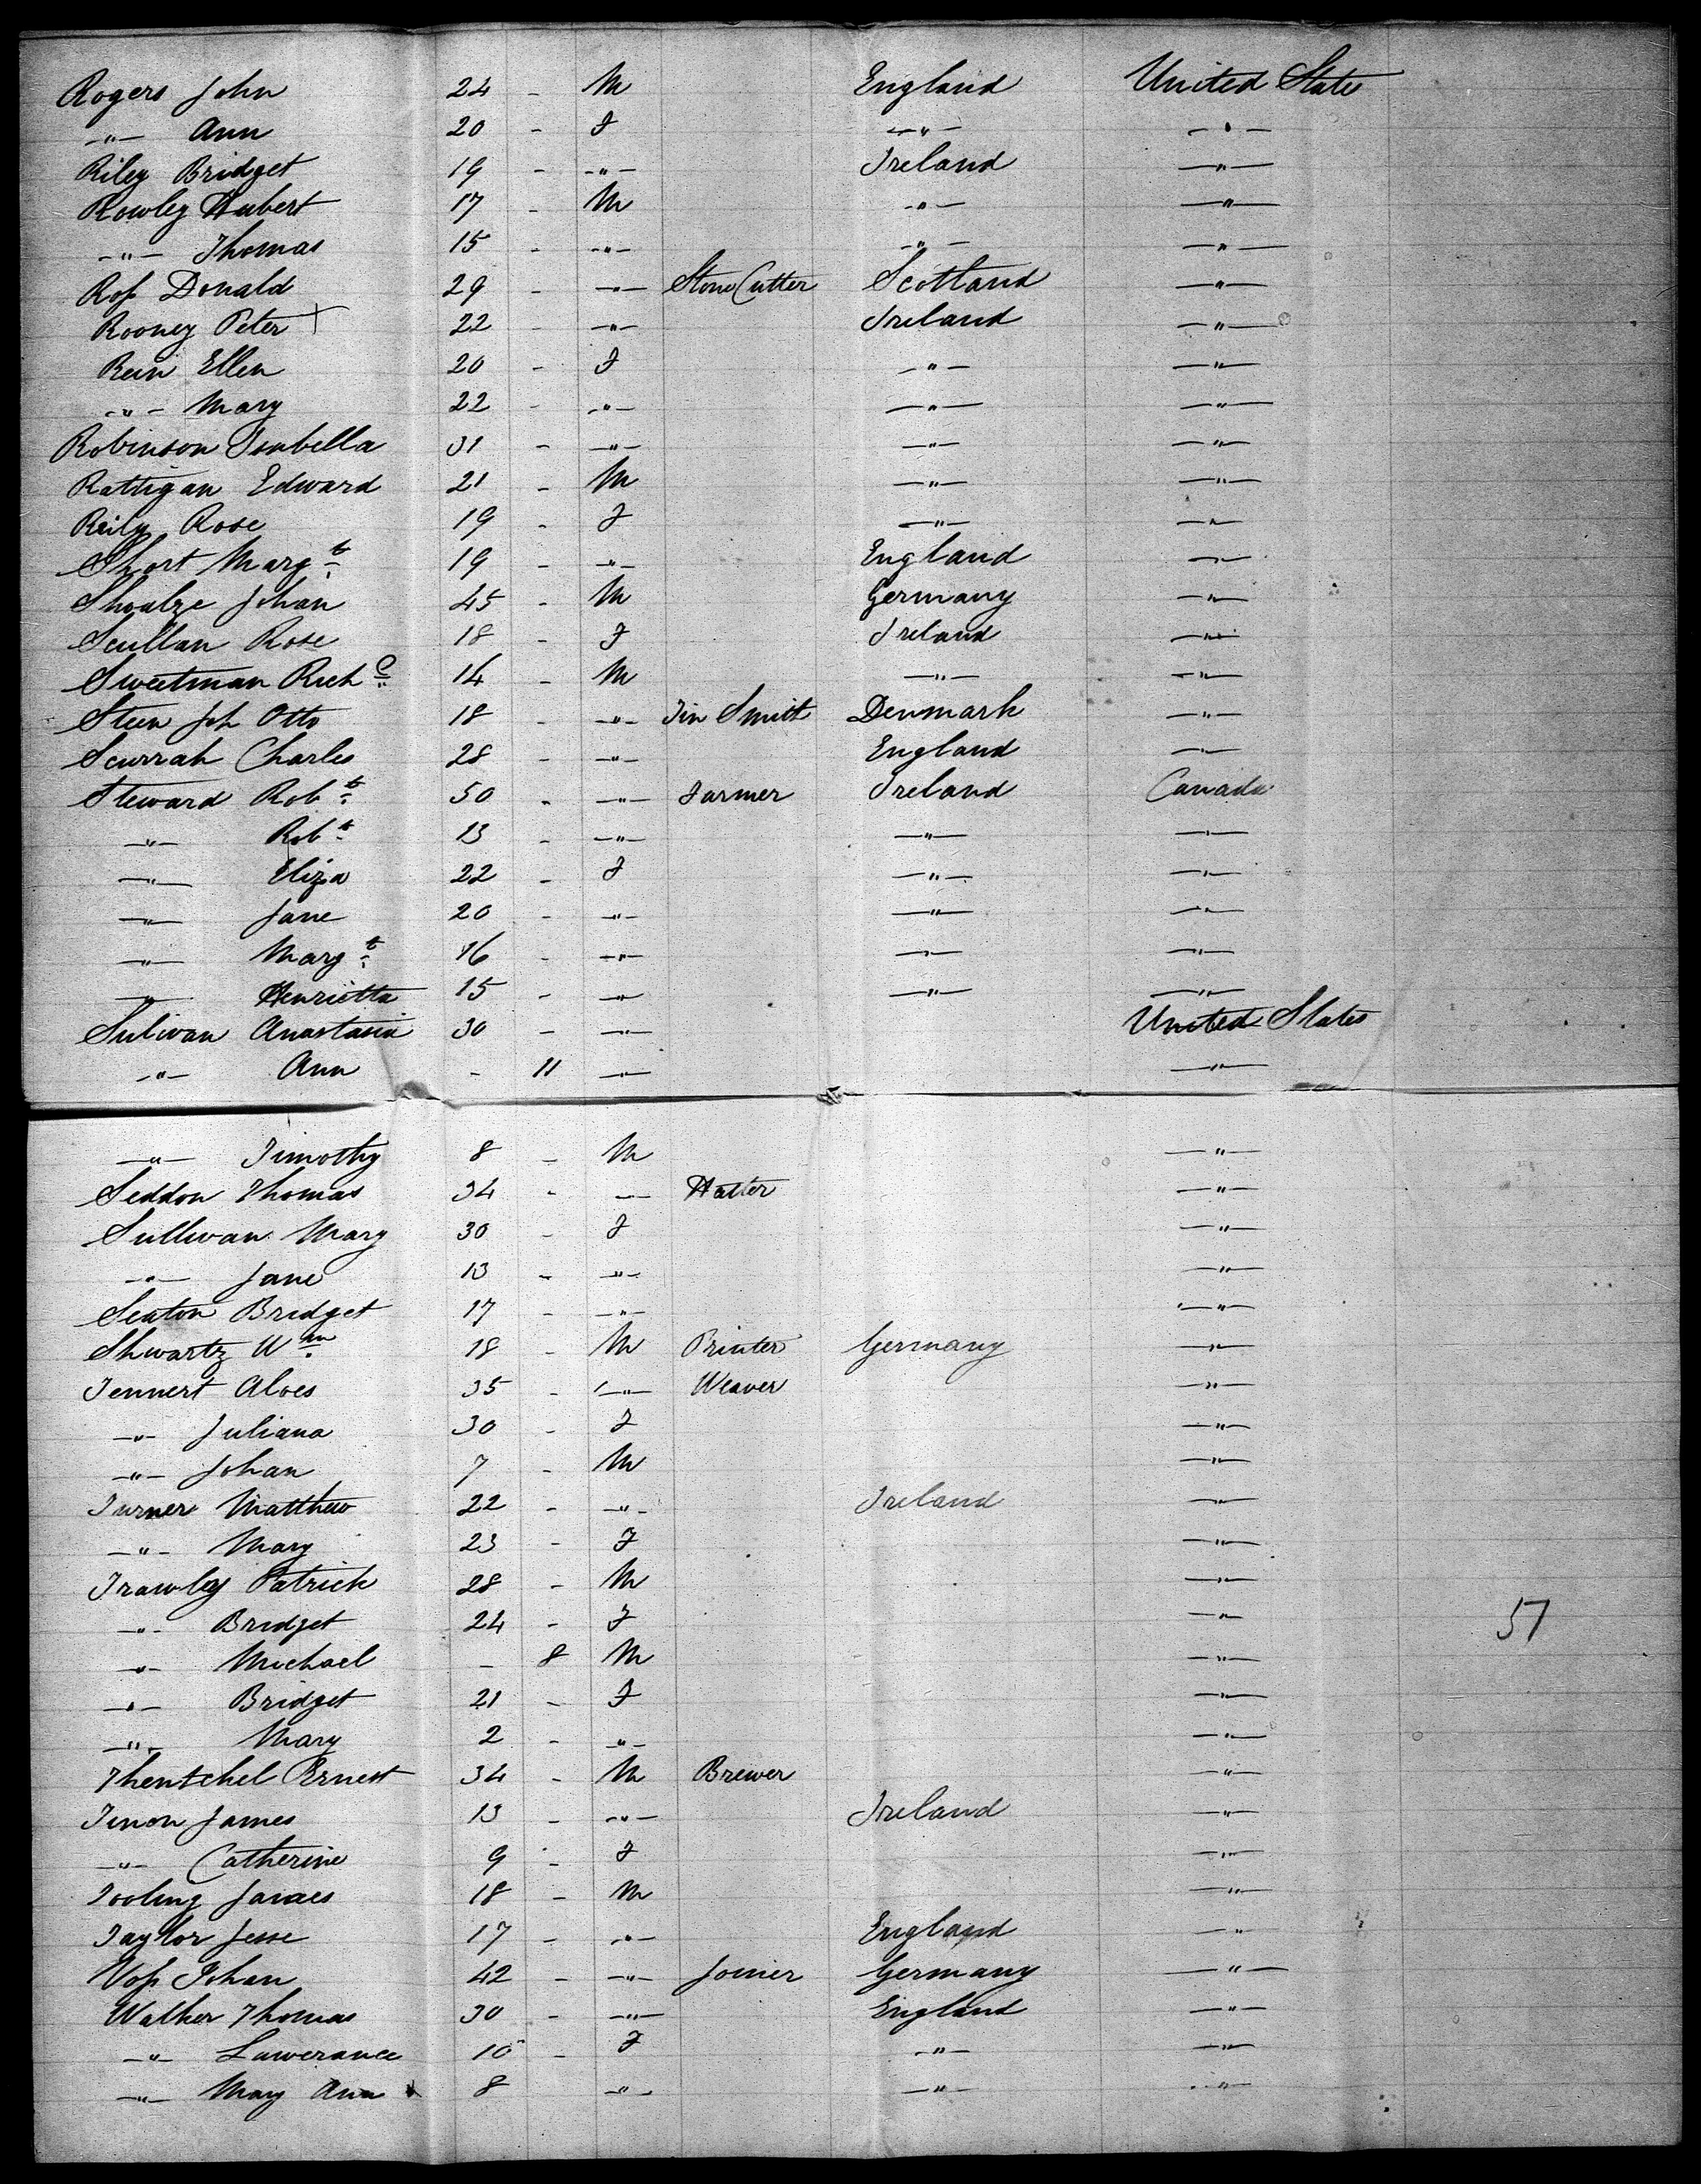 Rogers John 24 - M England United States
-"- Ann 20 - F -"- -"-
Riley Bridget 19 - -"- Ireland -"-
Rowley Hubert 17 - M -"- -"-
-"- Thomas 15 - -"- -"- -"-
Roſs Donald 29 - -"- Stone Cutter Scotland -"-
Rooney Peter + 22 - -"- Ireland -"-
Rein Ellen 20 - F -"- -"-
-"- Mary 22 - -"- -"- -"-
Robinson Isabella 31 - -"- -"- -"-
Rattigan Edward 21 - M -"- -"-
Reily Rose 19 - F -"- -"-
Short Margt 19 - -"- England -"-
Shoulze Johan 45 - M Germany -"-
Scullan Rose 18 - F Ireland -"-
Sweetman Richd 14 - M -"- -"-
Steen Joh Otto 18 - -"- Tin Smitt Denmark -"-
Scurrah Charles 28 - -"- England -"-
Steward Robt 50 - -"- Farmer Ireland Canada
-"- Robt 13 - -"- -"- -"-
-"- Eliza 22 - F -"- -"-
-"- Jane 20 - -"- -"- -"-
-"- Margt 16 - -"- -"- -"-
-"- Henrietta 15 - -"- -"- -"-
Sulivan Anastasia 30 - -"- United States
-"- Ann - 11 -"- -"-
-"- Timothy 8 - M -"-
Seddon Thomas 34 - -"- Hatter -"-
Sullivan Mary 30 - F -"-
-"- Jane 13 - -"- -"-
Seaton Bridget 17 - -"- -"-
Shwartz Wm 18 - M Printer Germany -"-
Tennert Aloes 35 - -"- Weaver -"-
-"- Juliana 30 - F -"-
-"- Johan 7 - M -"-
Turner Matthew 22 - -"- Ireland -"-
-"- Mary 23 - F -"-
Trawley Patrick 28 - M -"-
-"- Bridget 24 - F -"- 57
-"- Michael - 8 M -"-
-"- Bridget 21 - F -"-
-"- Mary 2 - -"- -"-
Thentchel Ernest 34 - M Brewer -"-
Timon James 13 - -"- Ireland -"-
-"- Catherine 9 - F -"-
Tooling James 18 - M -"-
Taylor Jesse 17 - -"- England -"-
Voſs Johan 42 - -"- Joiner Germany -"-
Walker Thomas 30 - -"- England -"-
-"- Lawerance 10 - F -"- -"-
-"- Mary Ann 8 -"- -"- -"-